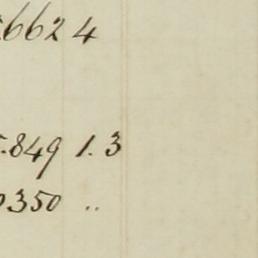 6662 4
.849 1.3
0350 ..